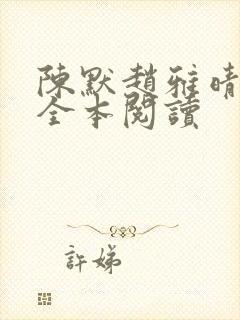 陳默趙雅晴
全本閱讀
許娣